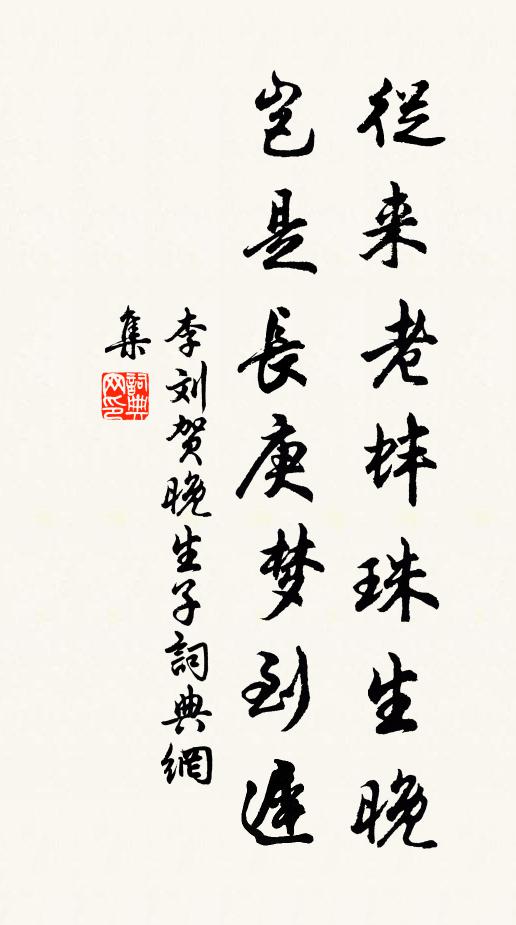 從来老蚌珠生晚
岂是長庚梦到遲
李刘贺晚生子詞典網
集
詞典
网印